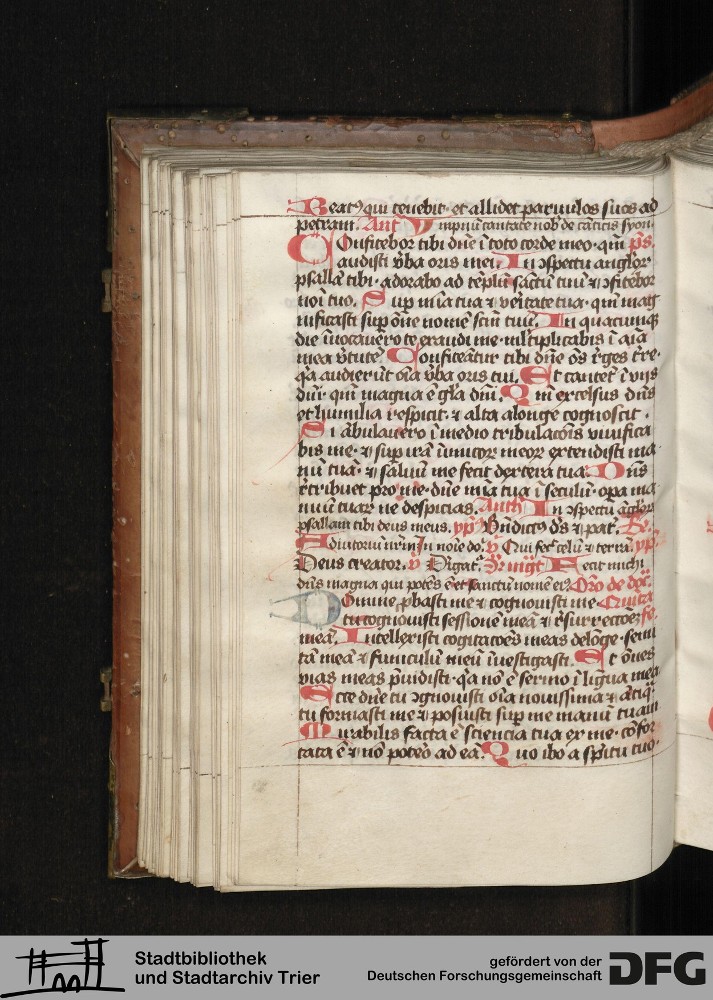 Beatꝯ qui tenebit · et allidet paruulos suos ad
petram. Ant Ympnū cantate nob̄ de cāticis syon·
COnfitebor tibi dn̄e ī toto corde meo · qm̄ ps.
audisti v̄ba oris mei. In ꝯspectu anglor
psallā tibi · adorabo ad tēplū sāctū tuū ⁊ ꝯfitebor
noī tuo. Sup mīa tua ⁊ veritate tua · qm̄ mag
nificasti sup om̄e nomē scm̄ tuū. In quacumqꝫ
die īuocauero te exaudi me · ml̄tiplicabis ī aīa
mea v̄tute. Confiteātur tibi dn̄e om̄s r̄ges t̄re ·
qa audierūt oīa v̄ba oris tui. Et cantēt ī vijs
dn̄i · qm̄ magna ē gl̄a dn̄i. Qm̄ excelsus dn̄s
et humilia respicit · ⁊ alta alonge cognoscit .
Si ābulauero ī medio tribulacōis viuifica
bis me · ⁊ sup irā īimicor meor extendisti ma
nū tuā · ⁊ saluū me fecit dextera tua. Dn̄s
r̄tribuet pro me · dn̄e mīa tua ī seculū · opa ma
nuū tuar ne despicias. Anth In ꝯspectu āglor
psallam tibi deus meus. Bn̄dictꝯ ds̄ ⁊ pat̄.
Adiutoriū nr̄m In noīe do. V Qui fec̄ celū ⁊ terrā.
Deus creator. V Dirigat. Fecit michi
dn̄s magna qui potēs ē et sanctū nomē eiꝯ
DOmine ꝓbasti me ⁊ cognouisti me
tu cognouisti sessionē meā ⁊ r̄surrectoēꝫ
meā. Intellexisti cogitacoēs meas delōge · semi
tā meā ⁊ funiculū meū īuestigasti. Et om̄es
vias meas p̄uidisti · qa nō ē sermo ī ligua mea
Ecce dn̄e tu ꝯgnouisti oīa nouissima ⁊ ātiq̄
tu formasti me ⁊ posuisti sup me manū tuam
Mirabilis facta ē sciencia tua ex me · cōfor
tata ē ⁊ nō potero ad eā. Quo ibo a spitu tuo ·
Stadtbibliothek
und Stadtarchiv Trier
gefördert von der
Deutschen Forschungsgemeinschaft
DFG